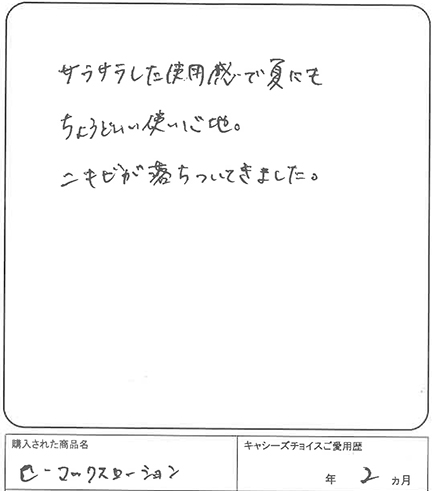 サラサラした使用感で夏にも
ちょうどいい使い心地。
ニキビが落ちついてきました。
購入された商品名
キャシーズチョイスご愛用歴
C-マックスローション
年 2 ヵ月